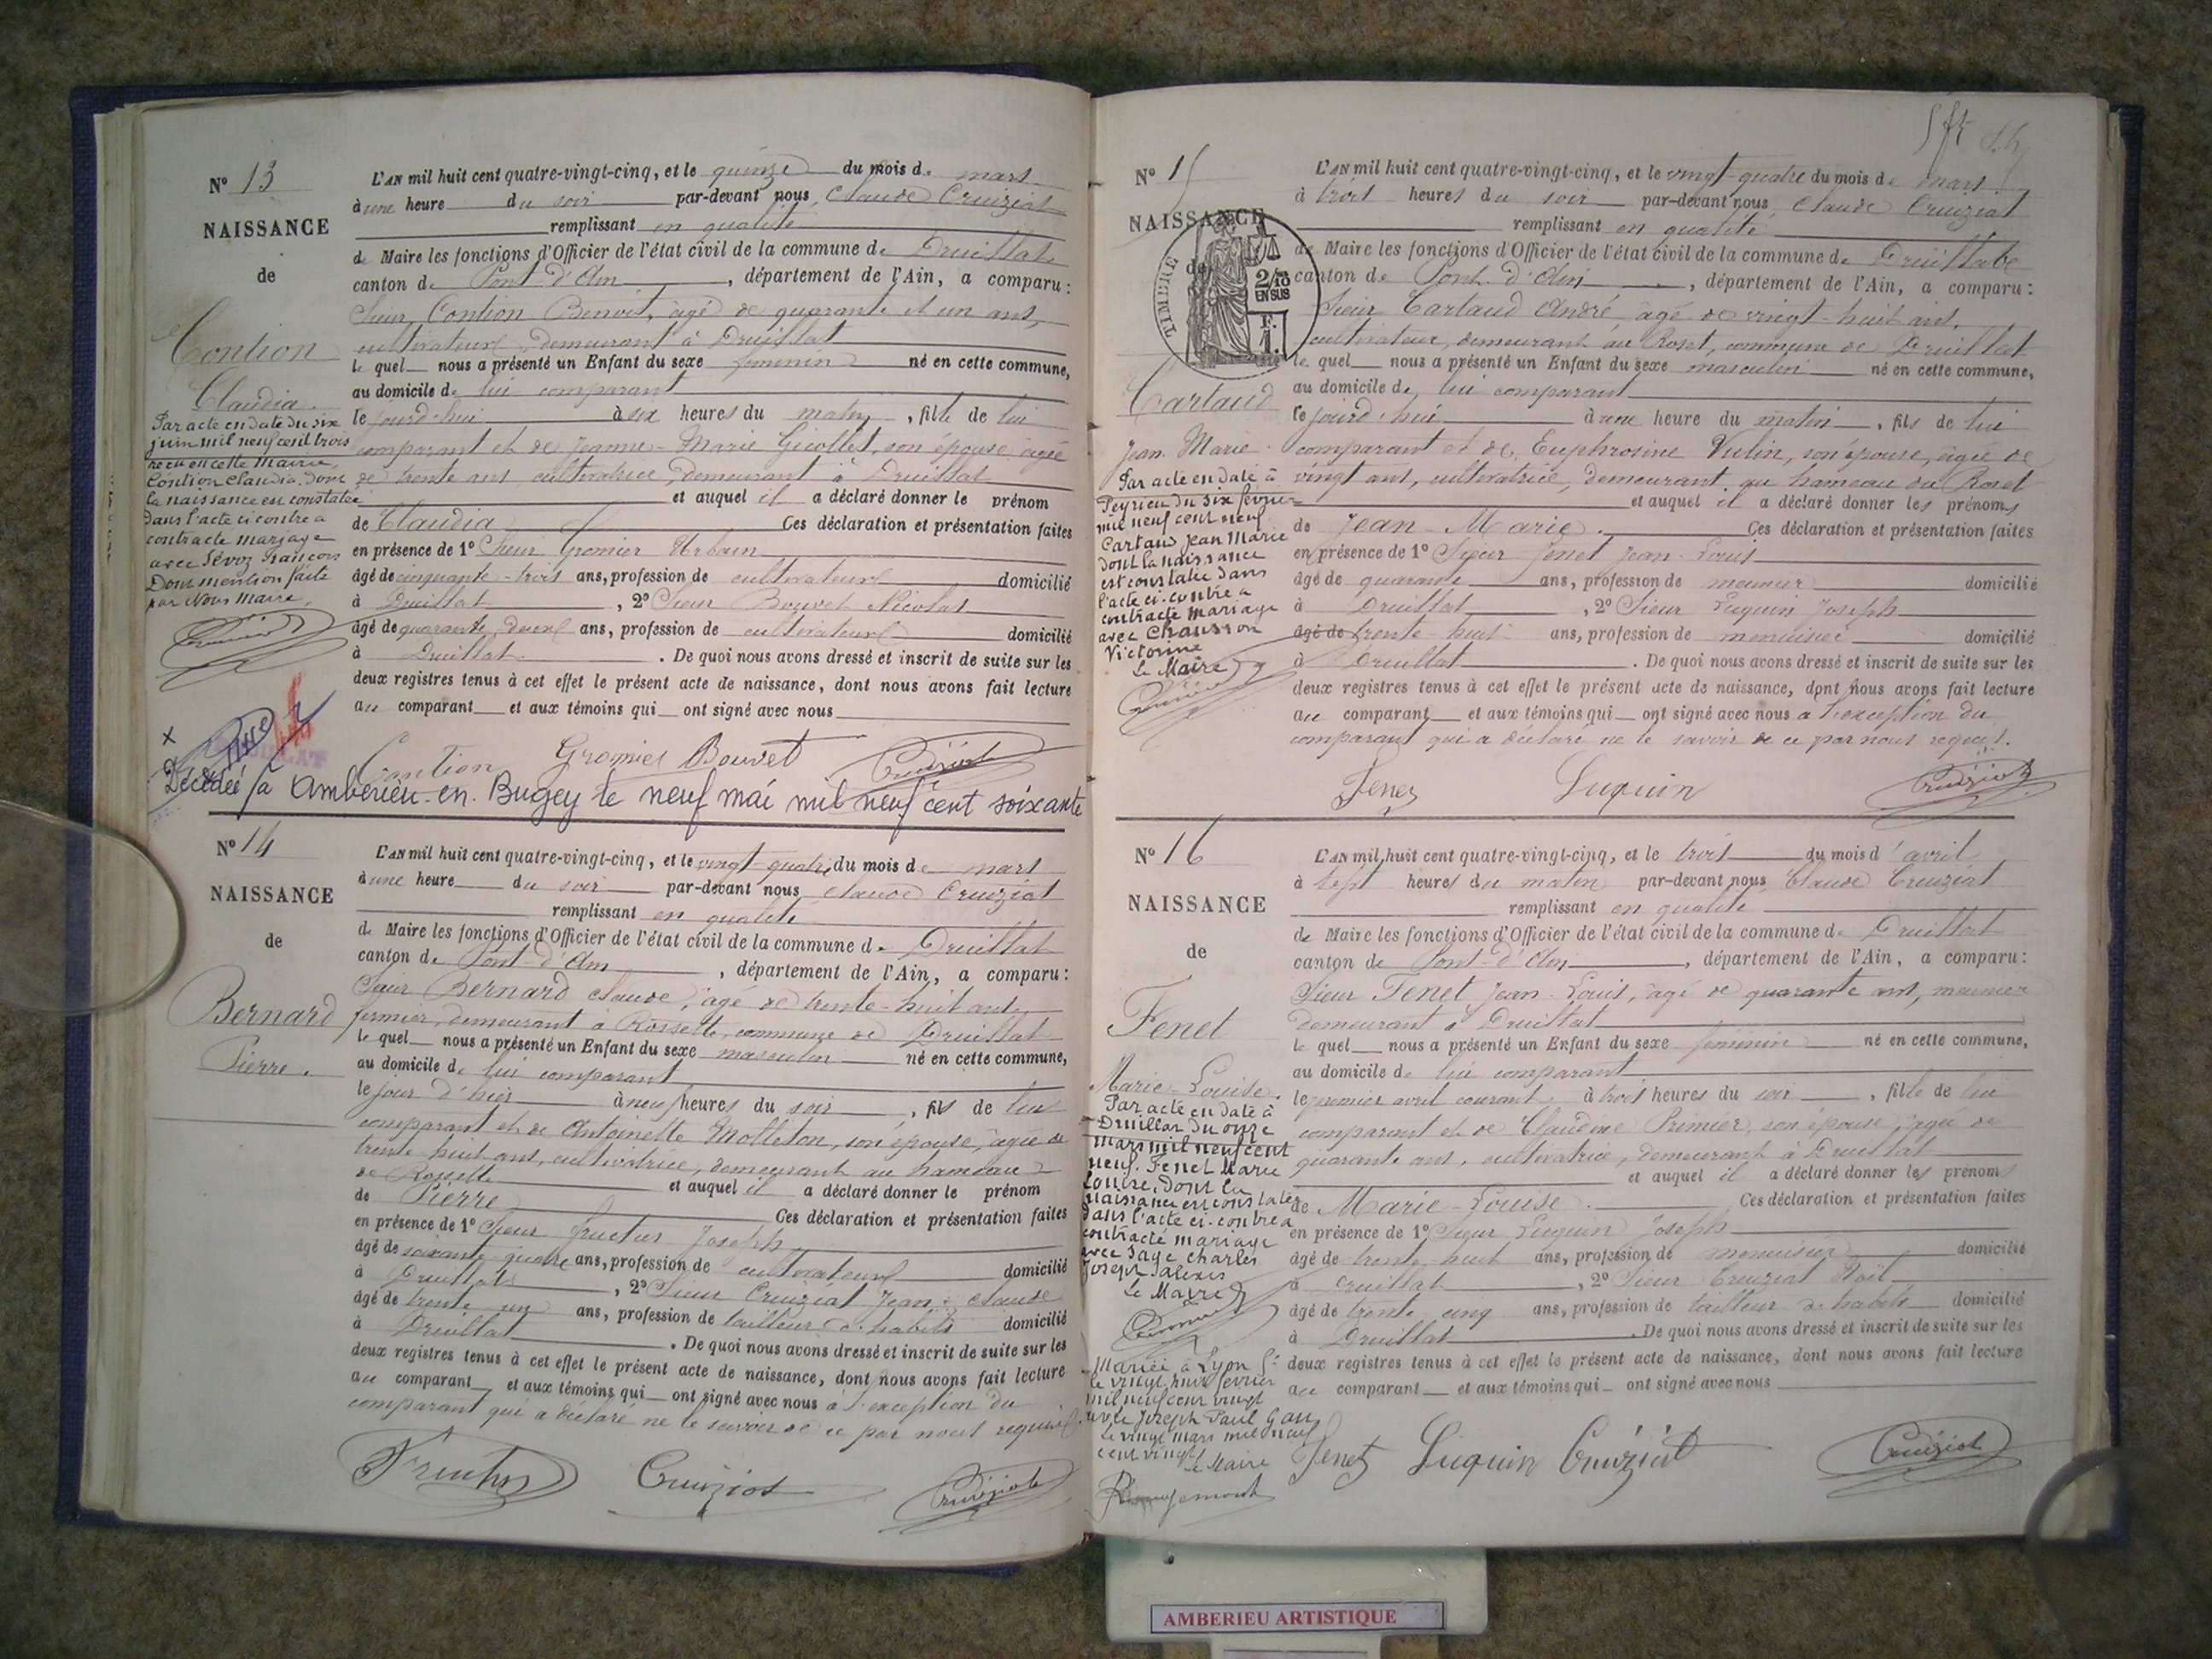 N° 13
NAISSANCE
de
Contion
Claudia.
Par acte en date du six
juin mil neuf cent trois
recu en cette Mairie,
Contion Claudia, dont
la naissance est constatée
dans l'acte ci contre a
contracté mariage
avec Sévoz François
Dont mention faite
par Nous Maire.
L'AN mil huit cent quatre-vingt-cinq, et le quinze du mois de mars
à une heure du soir par-devant nous Claude Cruiziat
remplissant en qualité
de Maire les fonctions d'Officier de l'état civil de la commune de Druillat
canton de Pont-d'Ain, département de l'Ain, a comparu:
Sieur Contion Benoit, âgé de quarante et un ans,
cultivateur, demeurant à Druillat
le quel nous a présenté un Enfant du sexe féminin né en cette commune,
au domicile de lui comparant
le jourd'hui à six heures du matin, fille de lui
comparant et de Jeanne-Marie Gicollet, son épouse, âgée
de trente ans, cultivatrice, demeurant à Druillat
et auquel il a déclaré donner le prénom
de Claudia Ces déclaration et présentation faites
en présence de 1° Sieur Gromier Urbain
âgé de cinquante-trois ans, profession de cultivateur domicilié
à Druillat, 2° Sieur Bouvet Nicolas
âgé de quarante deux ans, profession de cultivateur domicilié
à Druillat. De quoi nous avons dressé et inscrit de suite sur les
deux registres tenus à cet effet le présent acte de naissance, dont nous avons fait lecture
au comparant et aux témoins qui ont signé avec nous
Contion Gromier Bouvet Cruiziat
Décédée à Ambérieu-en-Bugey le neuf mai mil neuf cent soixante
N° 14
NAISSANCE
de
Bernard
Pierre.
L'AN mil huit cent quatre-vingt-cinq, et le vingt-quatre du mois de mars
à une heure du soir par-devant nous Claude Cruiziat
remplissant en qualité
de Maire les fonctions d'Officier de l'état civil de la commune de Druillat
canton de Pont-d'Ain, département de l'Ain, a comparu:
Sieur Bernard Claude, âgé de trente-huit ans,
fermier, demeurant à Rossette, commune de Druillat
le quel nous a présenté un Enfant du sexe masculin né en cette commune,
au domicile de lui comparant
le jour d'hier à neuf heures du soir, fils de lui
comparant et de Antoinette Molleton, son épouse, âgée de
trente huit ans, cultivatrice, demeurant au hameau
de Rossette et auquel il a déclaré donner le prénom
de Pierre Ces déclaration et présentation faites
en présence de 1° Sieur Fructus Joseph
âgé de soixante quatre ans, profession de cultivateur domicilié
à Druillat, 2° Sieur Cruiziat Jean-Claude
âgé de trente un ans, profession de tailleur d'habits domicilié
à Druillat. De quoi nous avons dressé et inscrit de suite sur les
deux registres tenus à cet effet le présent acte de naissance, dont nous avons fait lecture
au comparant et aux témoins qui ont signé avec nous à l'exception du
comparant qui a déclaré ne le savoir de ce par nous requis.
Cruiziat Cruiziat
N° 15
NAISSANCE
de
TIMBRE
2/10
EN SUS
F.
1.
Cartaud
Jean Marie
Par acte en date à
Peyrieu du six février
mil neuf cent neuf
Cartaud Jean Marie
dont la naissance
est constatée dans
l'acte ci-contre a
contracté mariage
avec Chausson
Victorine
Le Maire
L'AN mil huit cent quatre-vingt-cinq, et le vingt-quatre du mois de mars
à trois heures du soir par-devant nous Claude Cruiziat
remplissant en qualité
de Maire les fonctions d'Officier de l'état civil de la commune de Druillat
canton de Pont-d'Ain, département de l'Ain, a comparu:
Sieur Cartaud André, âgé de vingt-huit ans,
cultivateur, demeurant au Roset, commune de Druillat
le quel nous a présenté un Enfant du sexe masculin né en cette commune,
au domicile de lui comparant
le jourd'hui à une heure du matin, fils de lui
comparant et de Euphrosine Vulin, son épouse, âgée de
vingt ans, cultivatrice, demeurant au hameau du Roset
et auquel il a déclaré donner les prénoms
de Jean-Marie. Ces déclaration et présentation faites
en présence de 1° Sieur Fenet Jean-Louis
âgé de quarante ans, profession de meunier domicilié
à Druillat, 2° Sieur Luquin Joseph
âgé de trente-huit ans, profession de menuisier domicilié
à Druillat. De quoi nous avons dressé et inscrit de suite sur les
deux registres tenus à cet effet le présent acte de naissance, dont nous avons fait lecture
au comparant et aux témoins qui ont signé avec nous à l'exception du
comparant qui a déclaré ne le savoir de ce par nous requis.
Fenet Luquin Cruiziat
N° 16
NAISSANCE
de
Fenet
Marie-Louise.
Par acte en date à
Druillat du onze
mars mil neuf cent
neuf. Fenet Marie
Louise, dont la
naissance est constatée
dans l'acte ci-contre a
contracté mariage
avec Sage Charles
Joseph Alexis
Le Maire
Mariée à Lyon 5e
le vingt huit février
mil neuf cent vingt
avec Joseph Paul Gau
Le vingt mars mil neuf
cent vingt
Le Maire
L'AN mil huit cent quatre-vingt-cinq, et le trois du mois d'avril
à sept heures du matin par-devant nous Claude Cruiziat
remplissant en qualité
de Maire les fonctions d'Officier de l'état civil de la commune de Druillat
canton de Pont-d'Ain, département de l'Ain, a comparu:
Sieur Fenet Jean-Louis, âgé de quarante ans, meunier
demeurant à Druillat
le quel nous a présenté un Enfant du sexe féminin né en cette commune,
au domicile de lui comparant
le premier avril courant à trois heures du soir, fille de lui
comparant et de Claudine Primier, son épouse, âgée de
quarante ans, cultivatrice, demeurant à Druillat
et auquel il a déclaré donner les prénoms
de Marie-Louise. Ces déclaration et présentation faites
en présence de 1° Sieur Luquin Joseph
âgé de trente-huit ans, profession de menuisier domicilié
à Druillat, 2° Sieur Cruiziat Noël
âgé de trente cinq ans, profession de tailleur d'habits domicilié
à Druillat. De quoi nous avons dressé et inscrit de suite sur les
deux registres tenus à cet effet le présent acte de naissance, dont nous avons fait lecture
au comparant et aux témoins qui ont signé avec nous
Fenet Luquin Cruiziat Cruiziat
AMBERIEU ARTISTIQUE